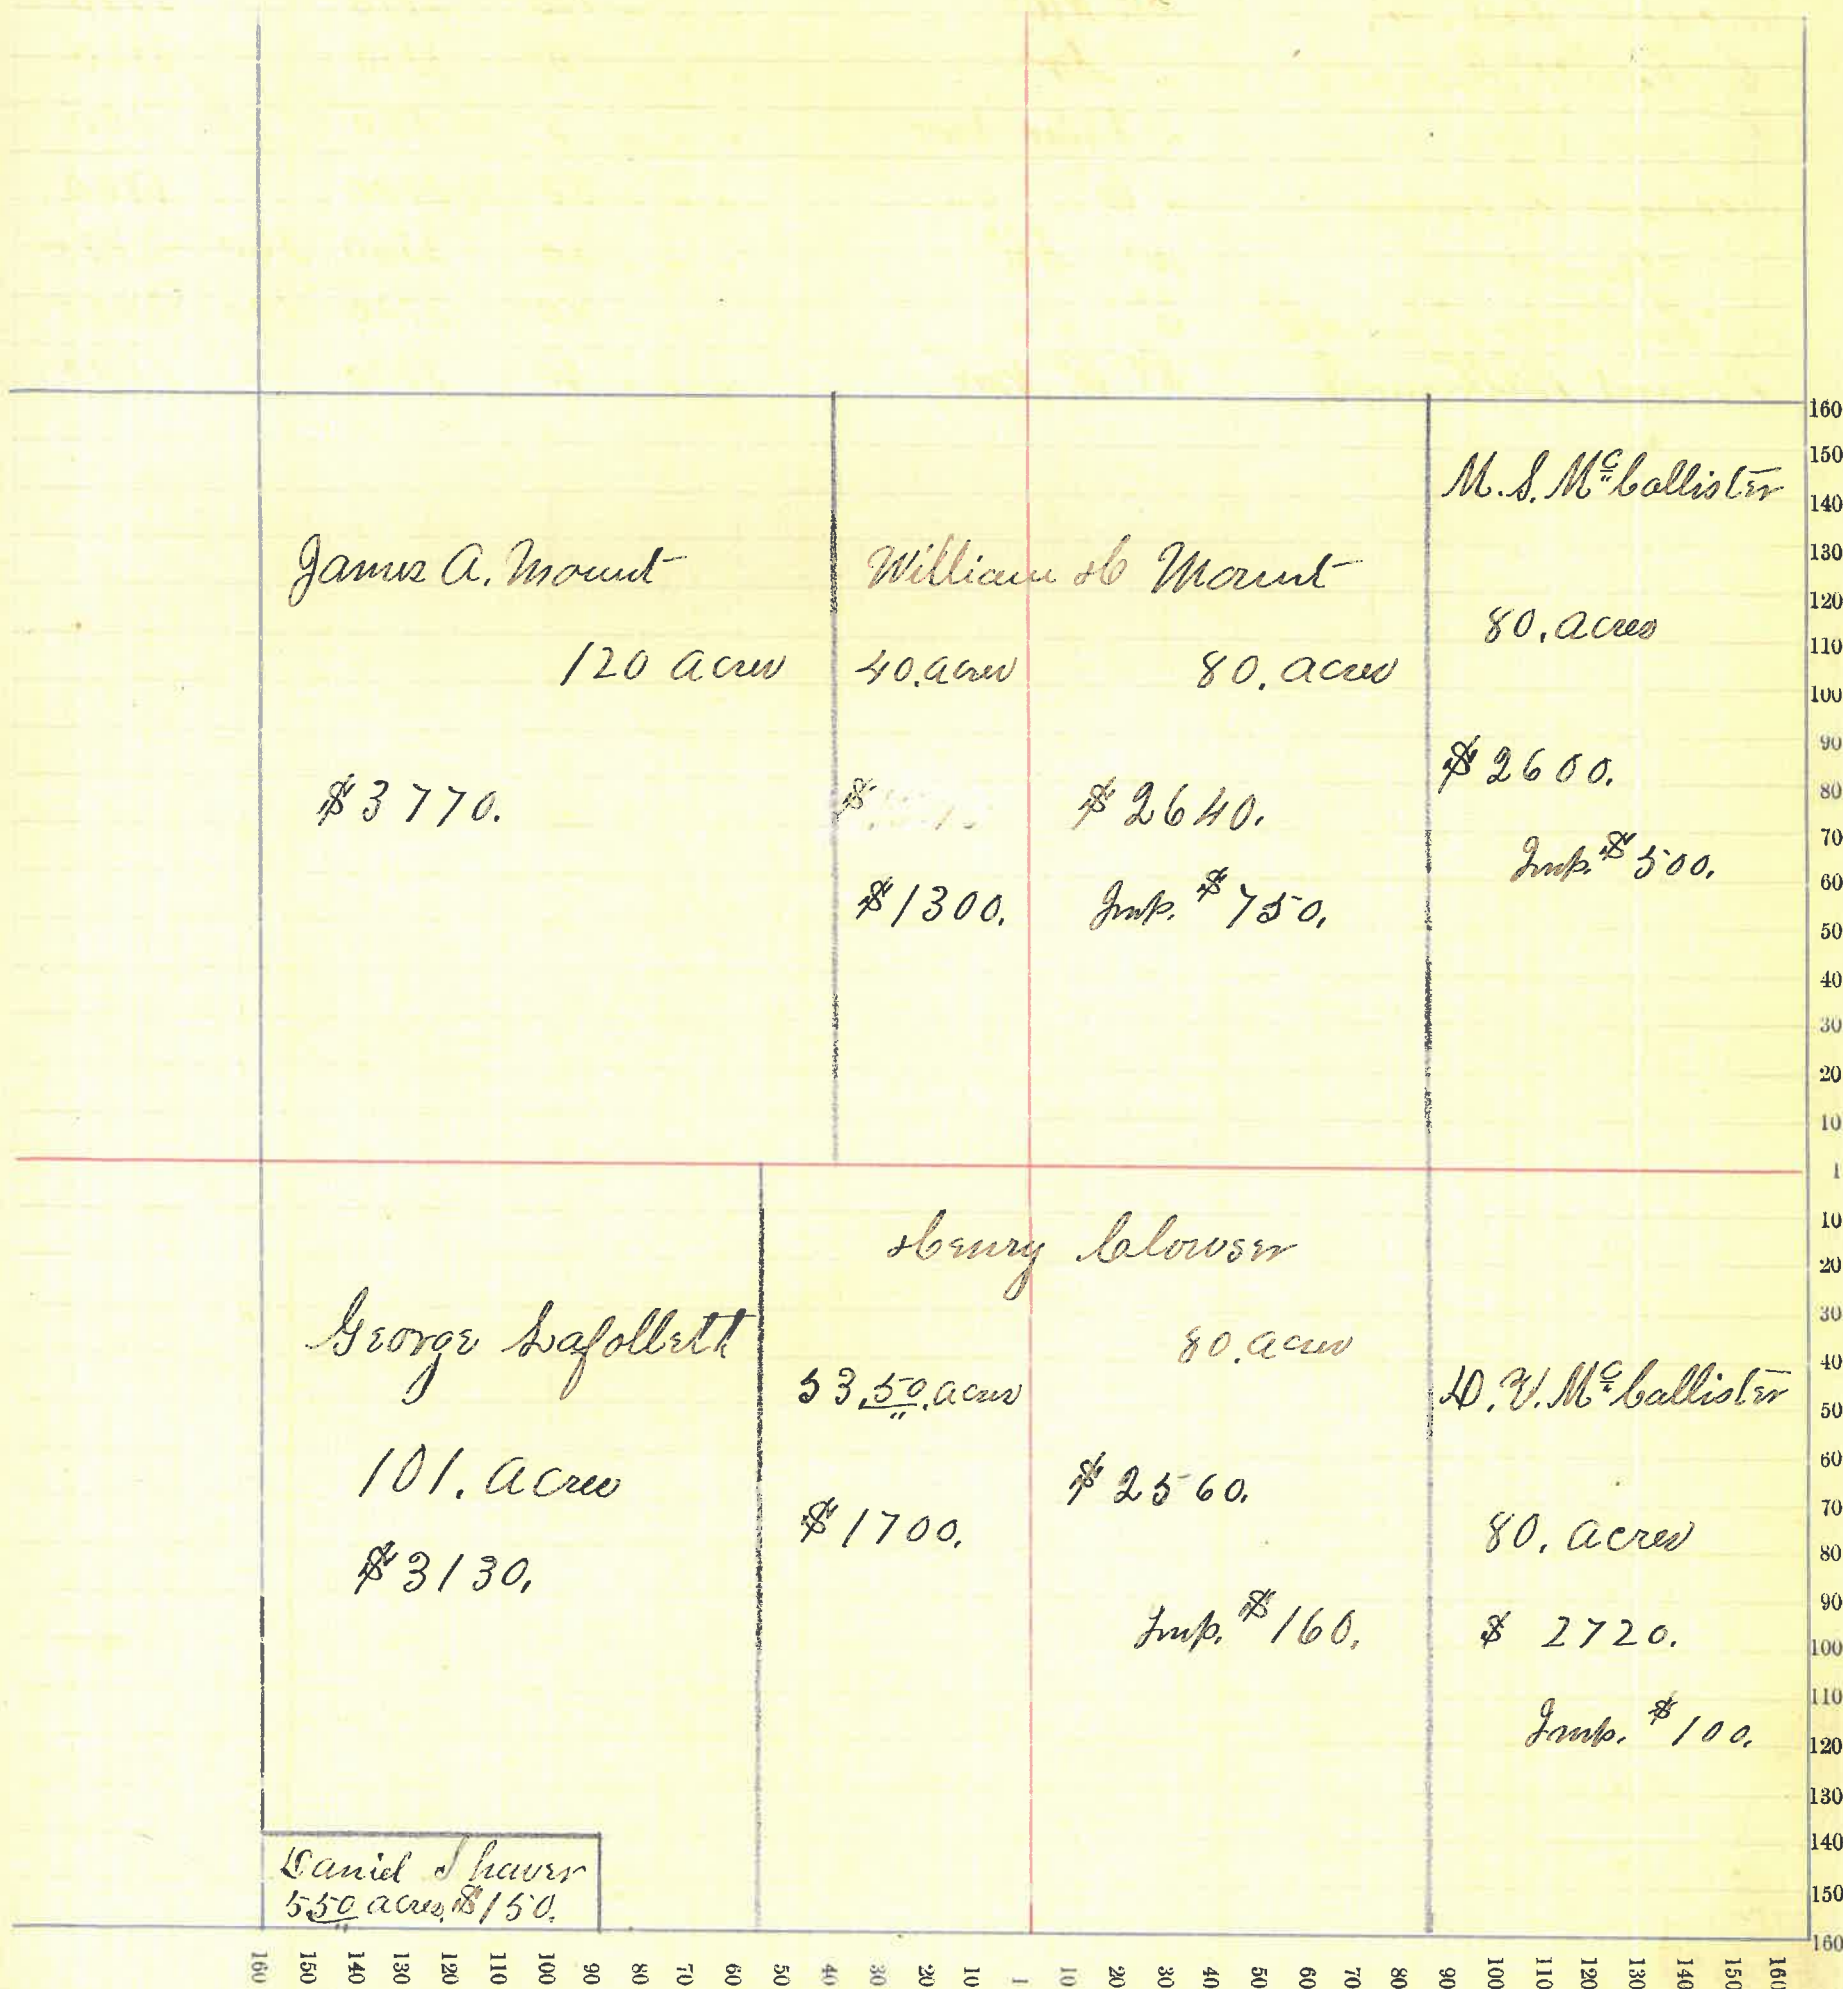 James A. Mount
120 acres
$3770.
William H Mount
40. acres
80. acres
$
$2640.
$1300.
Imp. $750.
M. S. McCallister
80. acres
$2600.
Imp. $500.
George Lafollett
101. acres
$3130.
Henry Clowser
80. acres
53.50. acres
$2560.
$1700.
Imp. $160.
D. V. McCallister
80. acres
$ 2720.
Imp. $100.
Daniel Shaver
5.50 acres, $150.
160
150
140
130
120
110
100
90
80
70
60
50
40
30
20
10
1
10
20
30
40
50
60
70
80
90
100
110
120
130
140
150
160
160 150 140 130 120 110 100 90 80 70 60 50 40 30 20 10 1 10 20 30 40 50 60 70 80 90 100 110 120 130 140 150 160